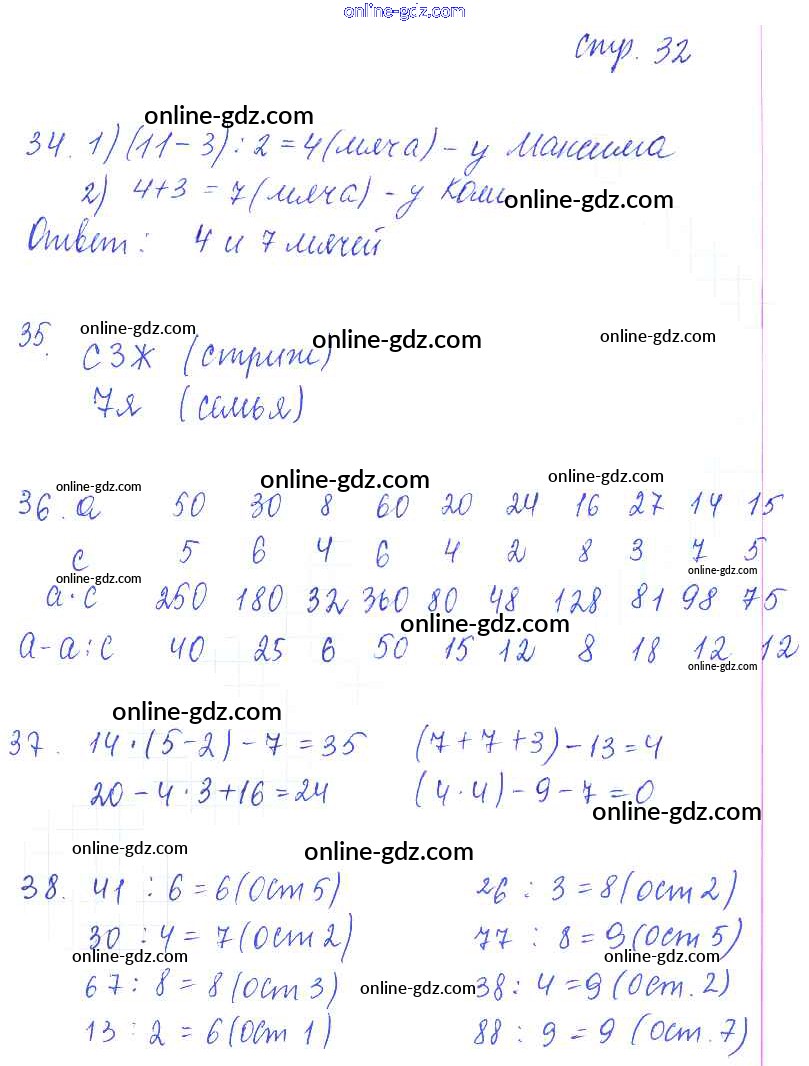 online-gdz.com
стр. 32
online-gdz.com
34. 1) (11-3) : 2 = 4 (мяча) - у Максима
2) 4+3 = 7 (мяча) - у Коли
online-gdz.com
Ответ: 4 и 7 мячей
online-gdz.com online-gdz.com online-gdz.com
35. СЗЖ (стриж)
7я (семья)
online-gdz.com online-gdz.com online-gdz.com
36. а 50 30 8 60 20 24 16 27 14 15
с 5 6 4 6 4 2 8 3 7 5
online-gdz.com online-gdz.com
а·с 250 180 32 360 80 48 128 81 98 75
online-gdz.com
а-а:с 40 25 6 50 15 12 8 18 12 12
online-gdz.com
online-gdz.com
37. 14·(5-2)-7=35 (7+7+3)-13=4
20-4·3+16=24 (4·4)-9-7=0
online-gdz.com
online-gdz.com online-gdz.com
38. 41 : 6 = 6 (ост 5) 26 : 3 = 8 (ост 2)
30 : 4 = 7 (ост 2) 77 : 8 = 9 (ост 5)
online-gdz.com online-gdz.com
67 : 8 = 8 (ост 3) 38 : 4 = 9 (ост. 2)
online-gdz.com
13 : 2 = 6 (ост 1) 88 : 9 = 9 (ост. 7)